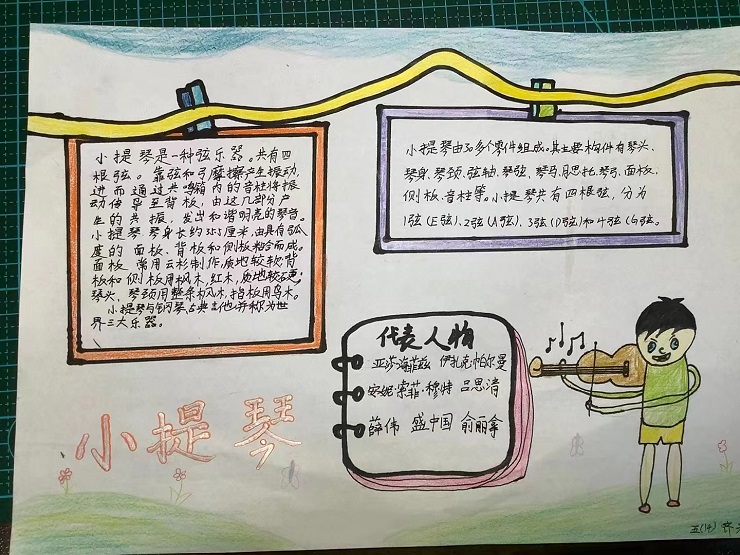 小提琴是一种弦乐器。共有四
根弦。靠弦和弓摩擦产生振动,
进而通过共鸣箱内的音柱将振
动传导至背板,由这几部分产
生的共振,发出和谐明亮的琴音。
小提琴琴身长约35.5厘米,由具有弧
度的面板、背板和侧板粘合而成。
面板常用云杉制作,质地较软背
板和侧板用枫木,红木,质地较硬;
琴头、琴颈用整条枫木,指板用乌木。
小提琴与钢琴古典吉他并称为世
界三大乐器。
小提琴由30多个零件组成。其主要构件有琴头、
琴身、琴颈、弦轴、琴弦、琴马、腮托、琴弓、面板、
侧板、音柱等。小提琴共有四根弦,分为
1弦(E弦)、2弦(A弦)、3弦(D弦)和4弦(G弦。
代表人物
亚莎·海菲兹 伊扎克·帕尔曼
安妮·索菲·穆特 吕思清
薛伟 盛中国 俞丽拿
小提琴
五(14) 齐